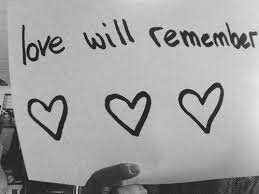 love will remember